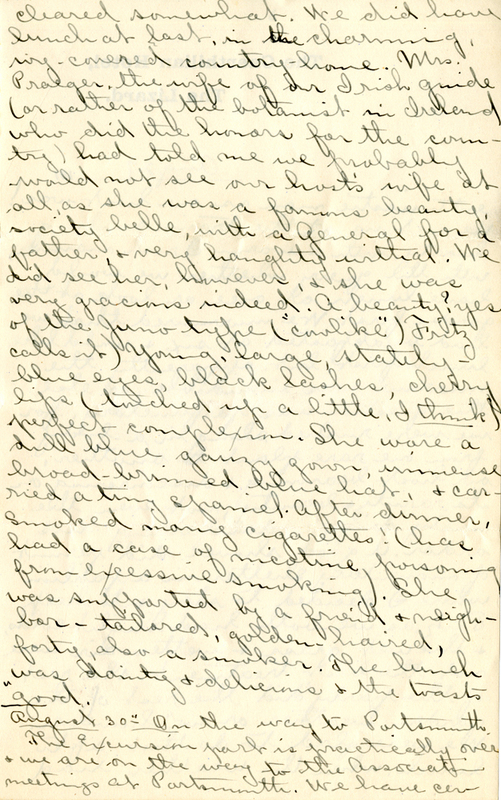 cleared somewhat. We did have
lunch at last, in the charming,
ivy-covered country-home. Mrs.
Praeger, the wife of our Irish guide
(or rather of the botanist in Ireland
who did the honors for the coun-
try) had told me we probably
would not see our host's wife at
all as she was a famous beauty,
society belle, with a General for a
father, & very haughty withal. We
did see her, however, & she was
very gracious indeed. A beauty? yes
of the Juno type ("cowlike") Fritz
calls it) Young, large, stately -
blue eyes, black lashes, cherry
lips (touched up a little, I think)
perfect complexion. She wore a
dull blue gauzy gown, immense
broad brimmed blue hat, & car-
ried a tiny spaniel. After dinner,
smoked many cigarettes! (has
had a case of nicotine poisoning
from excessive smoking). She
was supported by a friend & neigh-
bor - tailored, golden-haired,
forty, also a smoker. The lunch
was dainty & delicious & the toasts
"good.
August 30th On the way to Portsmouth.
The Excursion part is practically over
& we are on the way to the Association
meetings at Portsmouth. We have cer